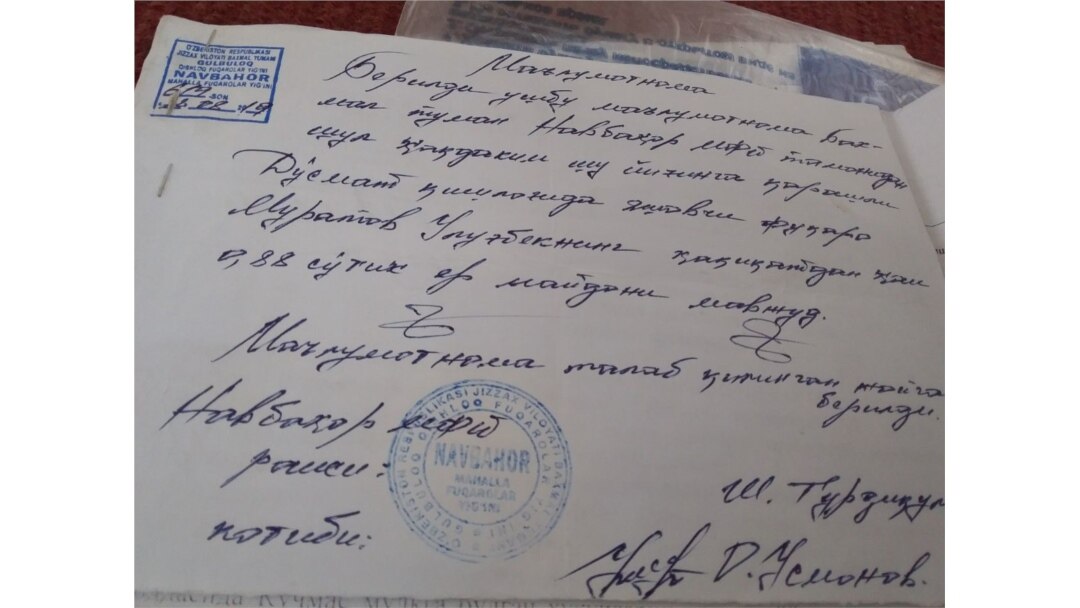 O'ZBEKISTON RESPUBLIKASI
JIZZAX VILOYATI BAXMAL TUMANI
GULBULOQ
QISHLOQ FUQAROLAR YIG'INI
NAVBAHOR
MAHALLA FUQAROLAR YIG'INI
-SON
Маълумотнома
Берилди ушбу маълумотнома Бах-
мал туман Навбаҳор МФЙ томонидан
шул ҳақдаким шу йиғинга қарашли
Дўсмат қишлоғида яшовчи фуқаро
Муратов Улуғбекнинг ҳақиқатдан ҳам
0,88 сўтих ер майдони мавжуд.
Маълумотнома талаб қилинган жойга
берилди.
Навбаҳор МФЙ
раиси:
Ш. Турдиқул
котиби:
О. Усмонов.
O'ZBEKISTON RESPUBLIKASI JIZZAX VILOYATI BAXMAL TUMANI
GULBULOQ QISHLOQ FUQAROLAR YIG'INI
NAVBAHOR
MAHALLA
FUQAROLAR
YIG'INI